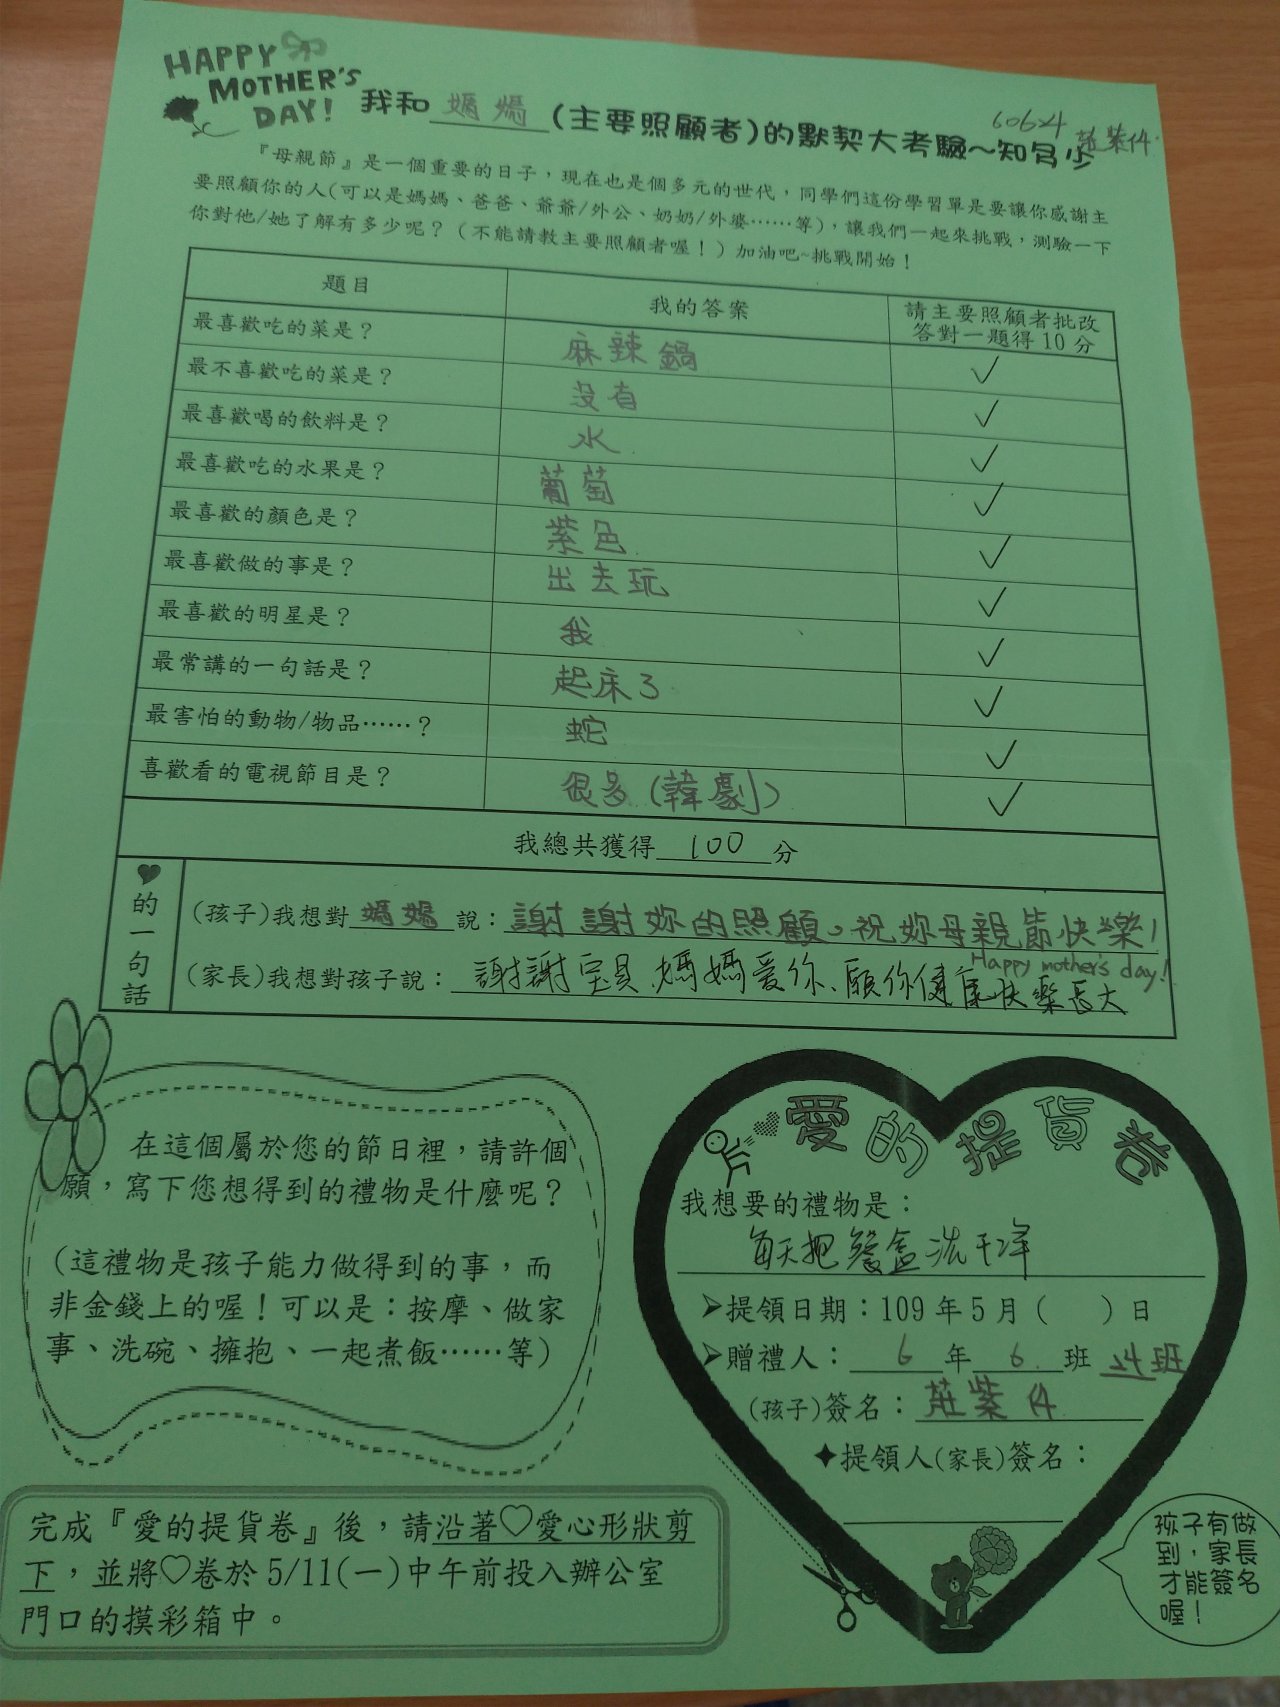 HAPPY
MOTHER'S
DAY!
我和 媽媽 (主要照顧者)的默契大考驗～知多少
60624 莊紫伃
『母親節』是一個重要的日子，現在也是個多元的世代，同學們這份學習單是要讓你感謝主
要照顧你的人(可以是媽媽、爸爸、爺爺/外公、奶奶/外婆……等)，讓我們一起來挑戰，測驗一下
你對他/她了解有多少呢？（不能請教主要照顧者喔！）加油吧~挑戰開始！
題目 我的答案 請主要照顧者批改
答對一題得10分
最喜歡吃的菜是？ 麻辣鍋 ✓
最不喜歡吃的菜是？ 沒有 ✓
最喜歡喝的飲料是？ 水 ✓
最喜歡吃的水果是？ 葡萄 ✓
最喜歡的顏色是？ 紫色 ✓
最喜歡做的事是？ 出去玩 ✓
最喜歡的明星是？ 我 ✓
最常講的一句話是？ 起床了 ✓
最害怕的動物/物品……？ 蛇 ✓
喜歡看的電視節目是？ 很多(韓劇) ✓
我總共獲得 100 分
♥的一句話
(孩子)我想對 媽媽 說：謝謝妳的照顧。祝妳母親節快樂！
Happy mother's day!
(家長)我想對孩子說：謝謝寶貝、媽媽愛你、願你健康快樂長大
在這個屬於您的節日裡，請許個
願，寫下您想得到的禮物是什麼呢？
（這禮物是孩子能力做得到的事，而
非金錢上的喔！可以是：按摩、做家
事、洗碗、擁抱、一起煮飯……等）
完成『愛的提貨卷』後，請沿著♡愛心形狀剪
下，並將♡卷於5/11(一)中午前投入辦公室
門口的摸彩箱中。
愛的提貨卷
我想要的禮物是：
每天把餐盒洗干淨
➤提領日期：109年5月(　)日
➤贈禮人： 6 年 6 班 24班
(孩子)簽名：莊紫伃
✦提領人(家長)簽名：
孩子有做
到，家長
才能簽名
喔！